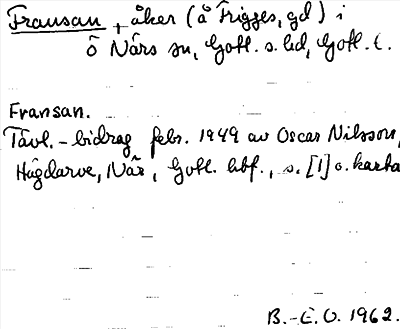 Fransan, åker (å Frigges, gd) i
ö Närs sn, Gotl. s. hd, Gotl. l.
Fransan.
Tävl.-bidrag febr. 1949 av Oscar Nilsson,
Hägdarve, När, Gotl. hbf., s. [1] o. karta
B.-E. O. 1962.